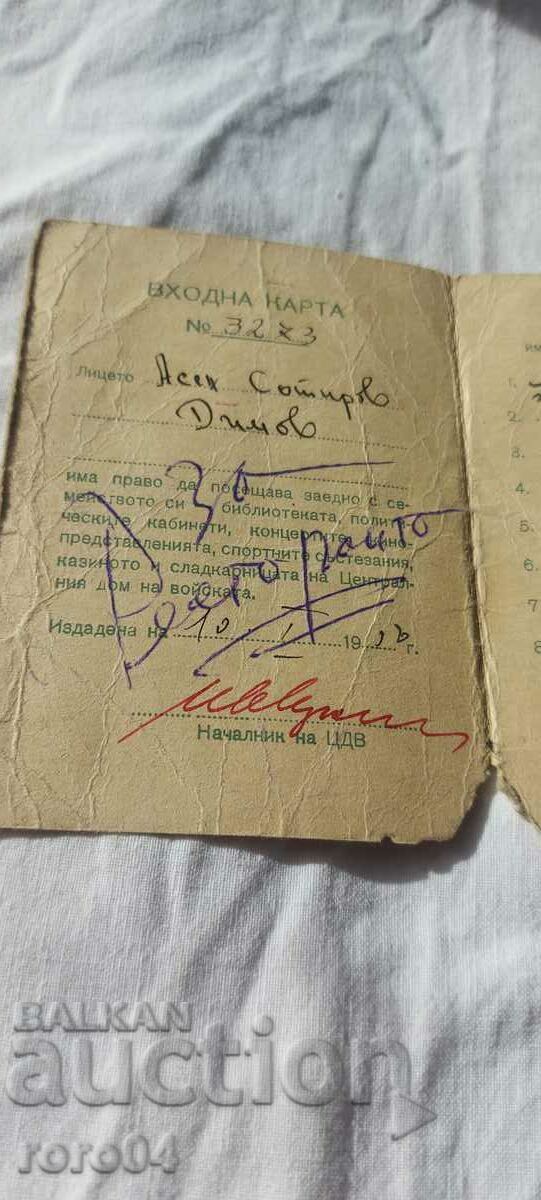 ВХОДНА КАРТА
№ 3273
Лицето Асен Сотиров
Димов
има право да посещава заедно с се-
мейството си библиотеката, полити-
ческите кабинети, концертите, кино-
представленията, спортните състезания,
казиното и сладкарницата на Централ-
ния дом на войската.
За
Ресторанта
Издадена на 10. I 19 г.
Началник на ЦДВ
им
1.
2.
3.
4.
5.
6.
7
8
BALKAN
auction
roro04